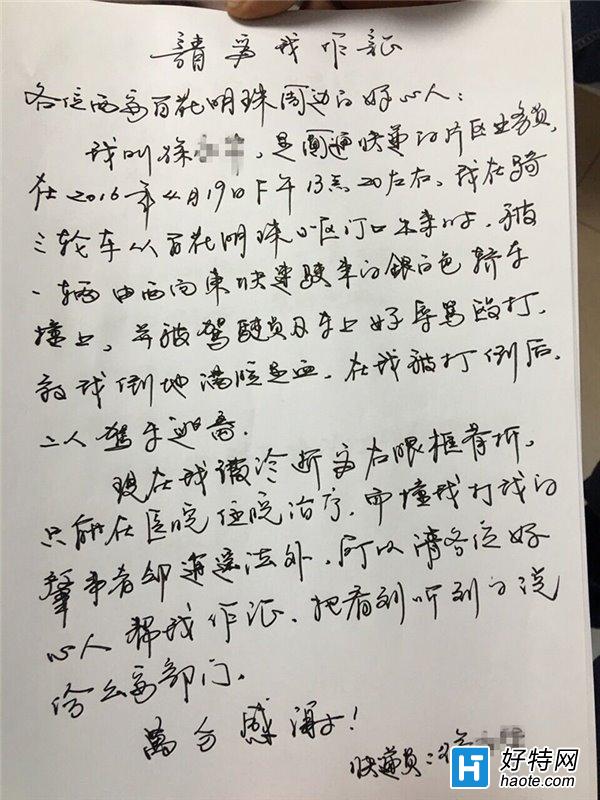 請为我作証
各位西安百花明珠周边的好心人：
我叫徐，是圆通快递的片区业务员，
在2016年4月19日下午13点20左右，我在骑
三轮车从百花明珠小区门口出来时，被
一辆由西向東快速駛来的銀白色轿车
撞上，并被駕駛員及车上好辱骂殴打，
致我倒地满脸是血，在我被打倒后，
二人驾车逃离。
现在我被诊断为右眼框骨折，
只能在医院住院治疗，而撞我打我的
肇事者却逍遥法外，所以请各位好
心人帮我作证，把看到听到的说
给公安部门。
萬分感謝！
快递员：徐
好特网
haote.com